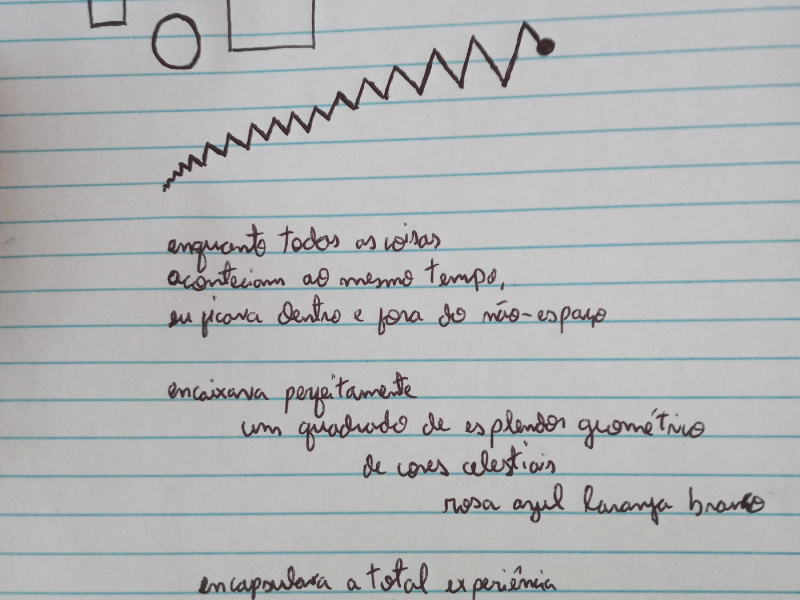 enquanto todas as coisas
aconteciam ao mesmo tempo,
eu ficava dentro e fora do não-espaço
encaixava perfeitamente
um quadrado de esplendor geométrico
de cores celestiais
rosa azul laranja branco
encapsulava a total experiência